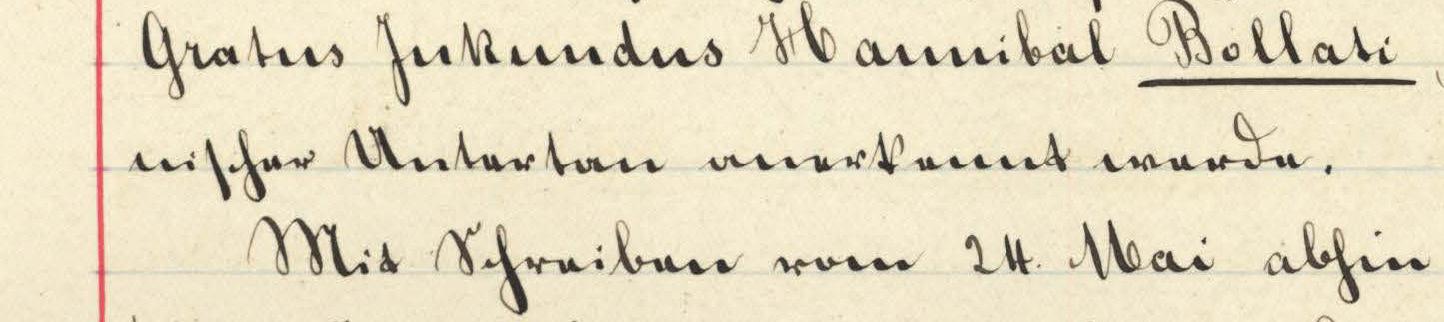 Gratus Jukundus Hannibal Bollati
nischer Untertan anerkannt werde.
Mit Schreiben vom 24. Mai abhin